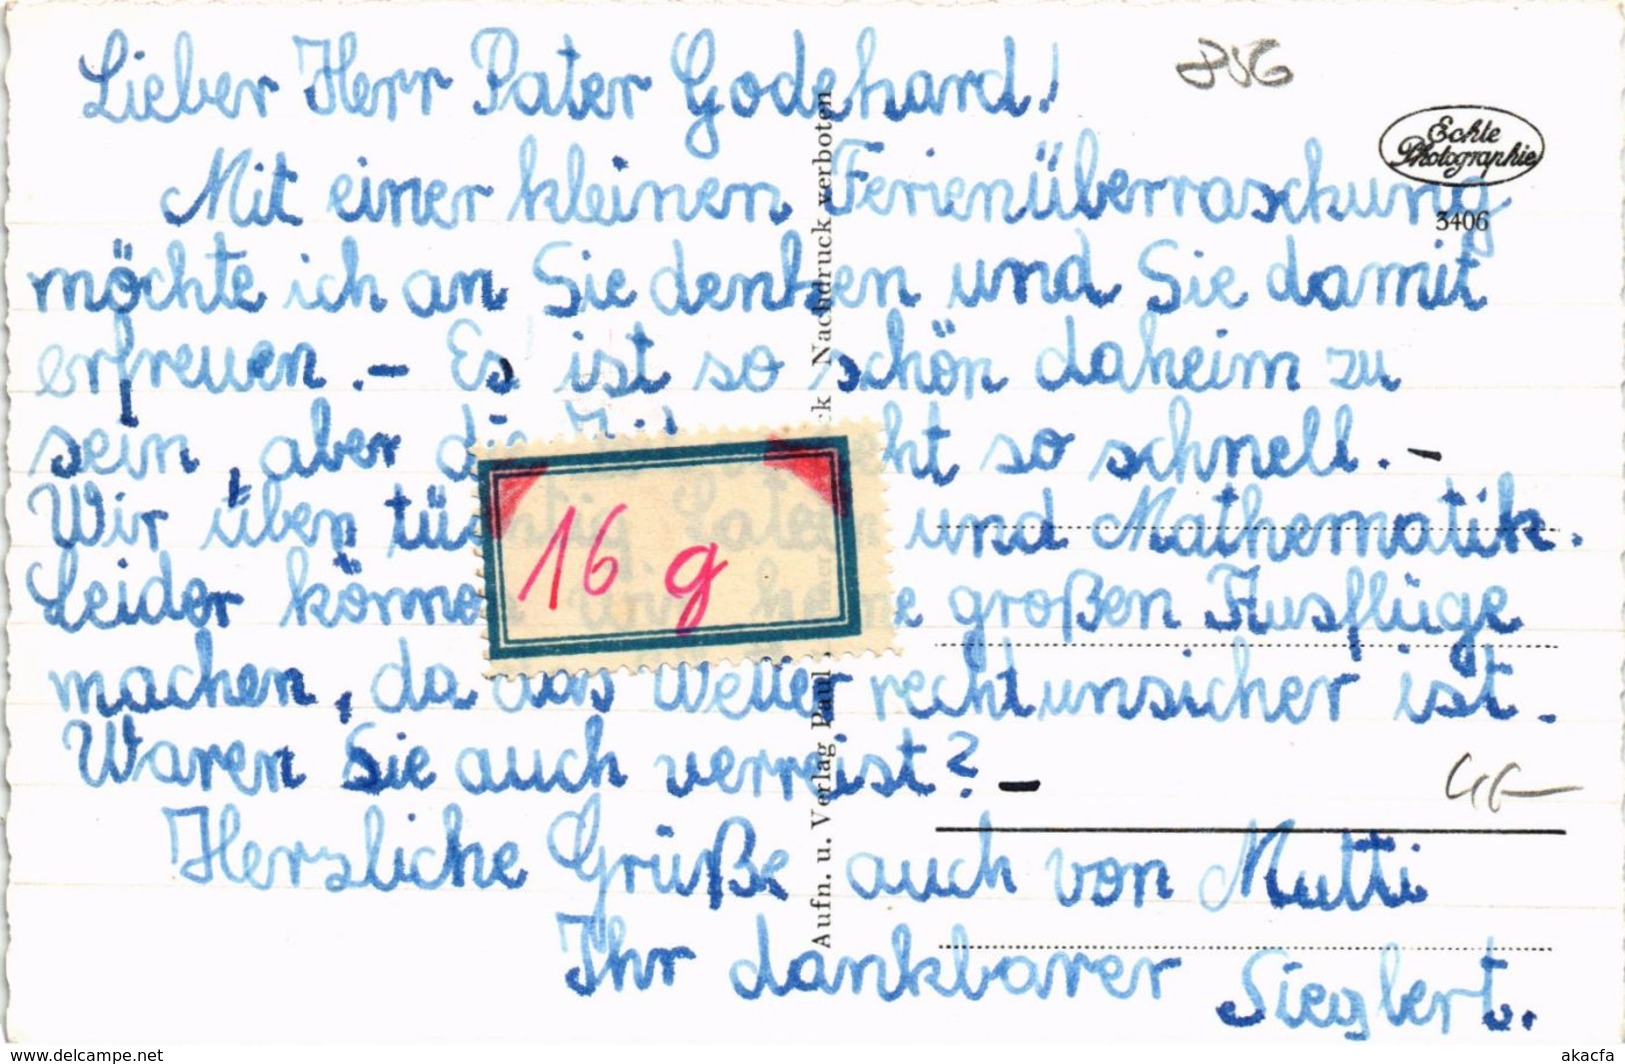 Lieber Herr Pater Godehard!
Mit einer kleinen Ferienüberraschung
möchte ich an Sie denken und Sie damit
erfreuen. - Es ist so schön daheim zu
sein, aber die Zeit geht so schnell. -
Wir üben tüchtig Latein und Mathematik.
Leider können wir keine großen Ausflüge
machen, da das Wetter recht unsicher ist.
Waren Sie auch verreist? -
Herzliche Grüße auch von Mutti
Ihr dankbarer Sieglbert.
16 g
Echte
Photographie
3406
Aufn. u. Verlag Paul
Nachdruck verboten
www.delcampe.net
akacfa